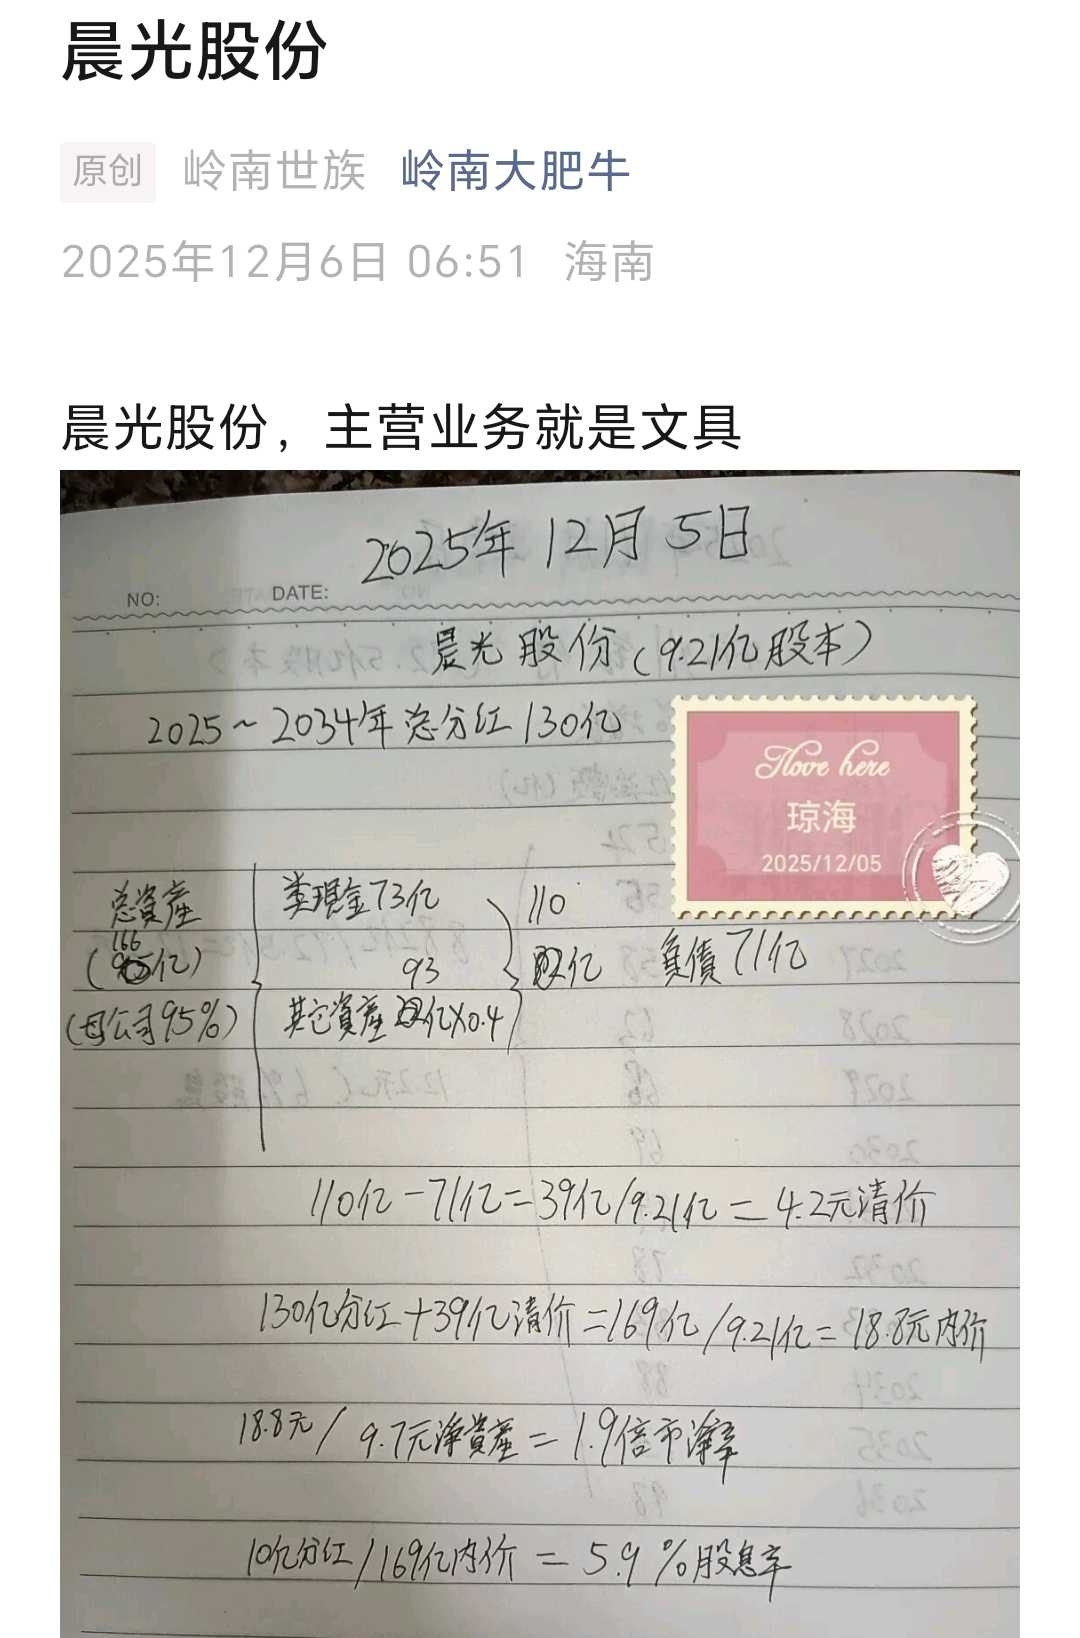 晨光股份
原创 岭南世族 岭南大肥牛
2025年12月6日 06:51 海南
晨光股份，主营业务就是文具
2025年 12月 5日
NO: DATE:
晨光股份(9.21亿股本)
2025～2034年总分红130亿
I love here
琼海
2025/12/05
总資産
166
(亿)
(母公司95%)
类現金73亿
93
其它資産 亿×0.4
110
亿 負債71亿
110亿-71亿=39亿/9.21亿=4.2元清价
130亿分红+39亿清价=169亿/9.21亿=18.8元内价
18.8元/9.7元净資産=1.9倍市净率
10亿分红/169亿内价=5.9%股息率